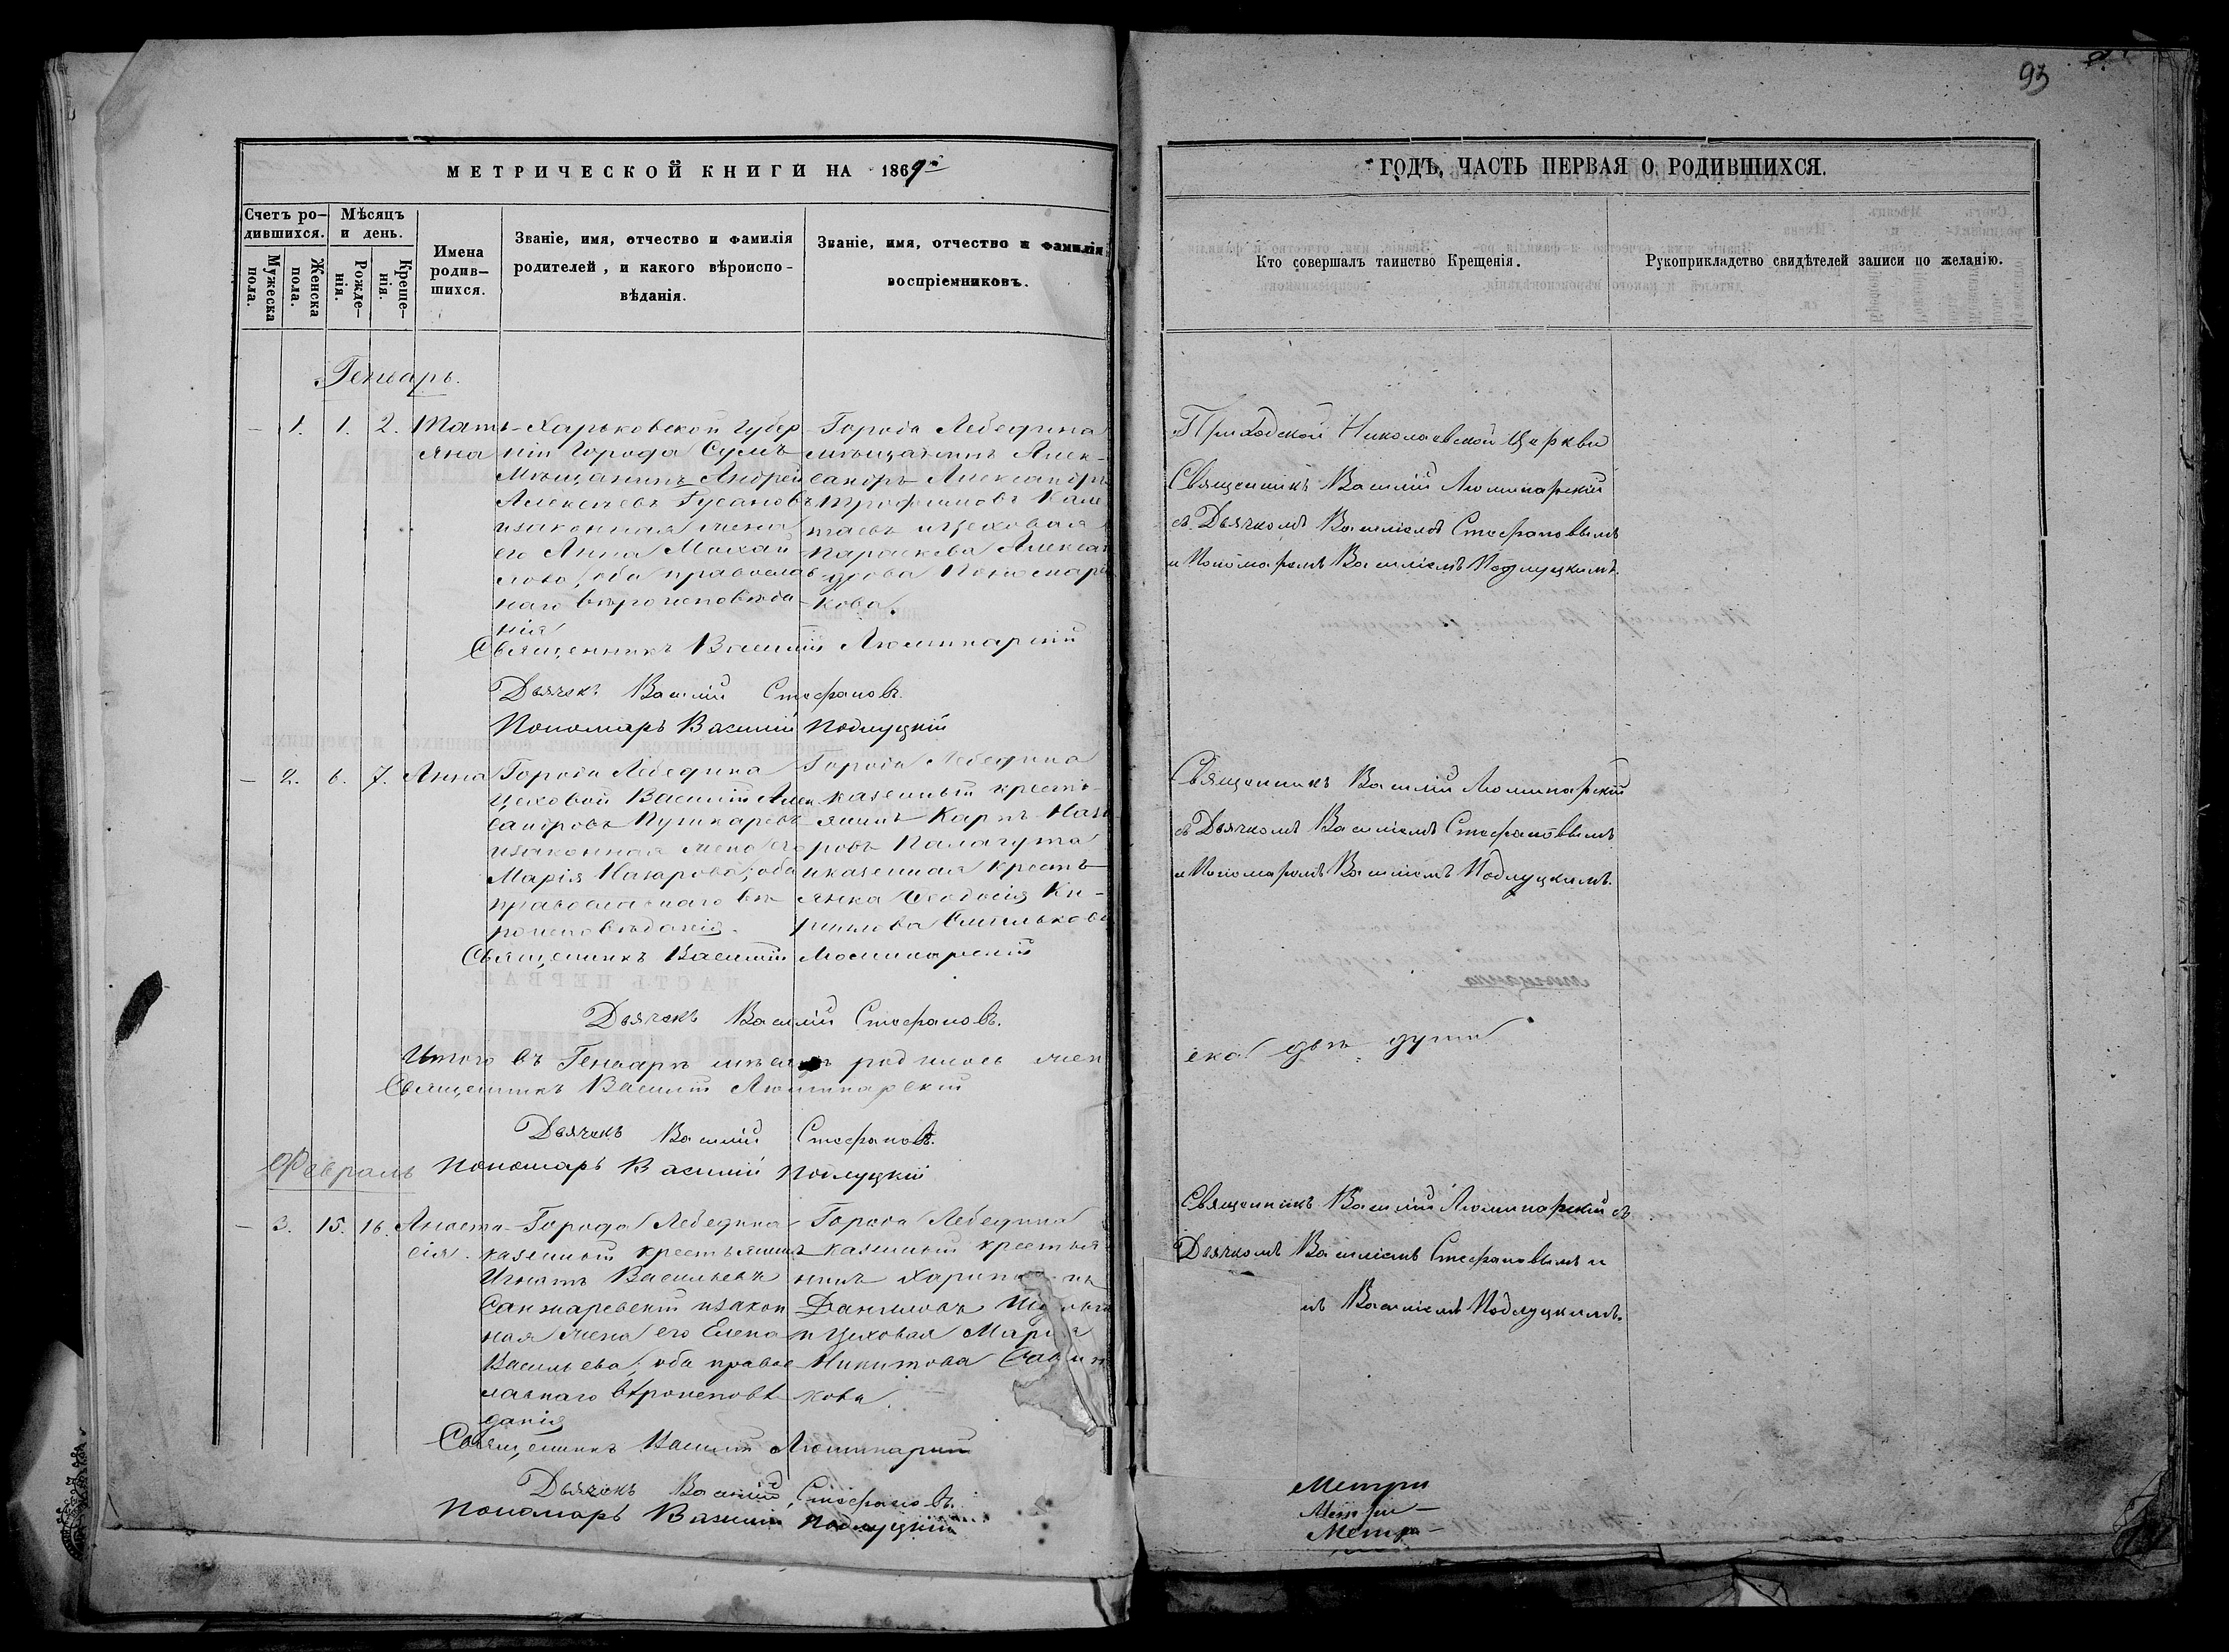 93
МЕТРИЧЕСКОЙ КНИГИ НА 1869й
ГОДЪ, ЧАСТЬ ПЕРВАЯ О РОДИВШИХСЯ.
Счетъ ро-
дившихся.
Мужеска
пола.
Женска
пола.
Мѣсяцъ
и день.
Рожде-
нія.
Креще-
нія.
Имена
родив-
шихся.
Званіе, имя, отчество и фамилія
родителей, и какого вѣроиспо-
вѣданія.
Званіе, имя, отчество и фамилія
воспріемниковъ.
Кто совершалъ таинство Крещенія.
Рукоприкладство свидѣтелей записи по желанію.
Генварь.
— 1. 1. 2. Тать-
яна
Харьковской Губер
ніи Города Сумъ
Мѣщанинъ Андрей
Алексѣевъ Гусановъ
изаконная жена
его Анна Михай
лова, оба православ
наго вѣроисповѣда
нія
Города Лебедина
мѣщанинъ Алек-
сандръ Александръ
Трофимовъ
и Цеховая
Параскева Алексан
дрова Пономарен
кова.
Приходской Николаевской Церкви
Священникъ Василій Люминарскій
съ Дьячкомъ Василіемъ Стефановымъ
и Пономаремъ Василіемъ Подлуцкимъ.
Священникъ Василій Люминарскій
Дьячекъ Василій Стефановъ.
Пономарь Василій Подлуцкій
— 2. 6. 7. Анна
Города Лебедина
Цеховой Василій Алек
сандровъ Пушкаревъ
изаконная жена его
Марія Назарова; оба
православнаго вѣ
роисповѣданія.
Города Лебедина
казенный кресть-
янинъ Карпъ Наза
ровъ Палагута
и казенная кресть
янка Ѳеодосія Ки-
рилова
Священникъ Василій Люминарскій
съ Дьячкомъ Василіемъ Стефановымъ
и Пономаремъ Василіемъ Подлуцкимъ.
Священникъ Василій Люминарскій
Дьячекъ Василій Стефановъ.
Итого въ Генварѣ мѣсяцѣ родилось жен
ска двѣ души
Священникъ Василій Люминарскій
Дьячекъ Василій Стефановъ.
Пономарь Василій Подлуцкій
Февраль
— 3. 15. 16. Анаста-
сія.
Города Лебедина
казенный крестьянинъ
Игнатъ Васильевъ
Санжаревскій изакон
ная жена его Елена
Васильева; оба право
славнаго вѣроисповѣ
данія
Города Лебедина
казенный крестья
нинъ
Даниловъ
и Цеховая Марія
Никитова
кова.
Священникъ Василій Люминарскій съ
Дьячкомъ Василіемъ Стефановымъ и
мъ Василіемъ Подлуцкимъ.
Священникъ Василій Люминарскій
Дьячекъ Василій Стефановъ.
Пономарь Василій Подлуцкій
Метри
Метри—
Метри—